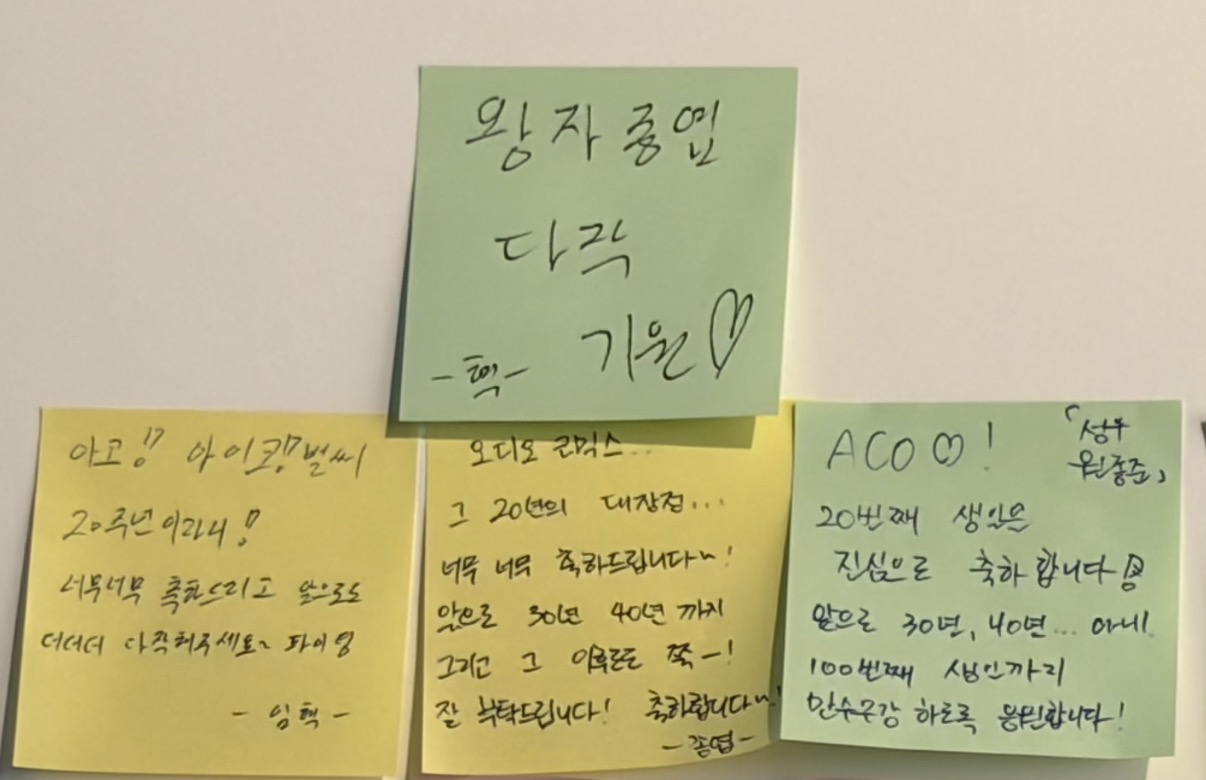 왕자 종엽
다작
기원♡
-혁-
아고!! 아이코!! 벌써
20주년이라니!!
너무너무 축하드리고 앞으로도
더더더 다작해주세요~ 파이팅
- 임혁 -
오디오 코믹스...
그 20년의 대장정...
너무 너무 축하드립니다~!
앞으로 30년 40년 까지
그리고 그 이후로도 쭉-!
잘 부탁드립니다! 축하합니다~!
-종엽-
ACO♡!
「성우
원종준」
20번째 생일은
진심으로 축하합니다
앞으로 30년, 40년... 아니!
100번째 생일까지
만수무강 하도록 응원합니다!